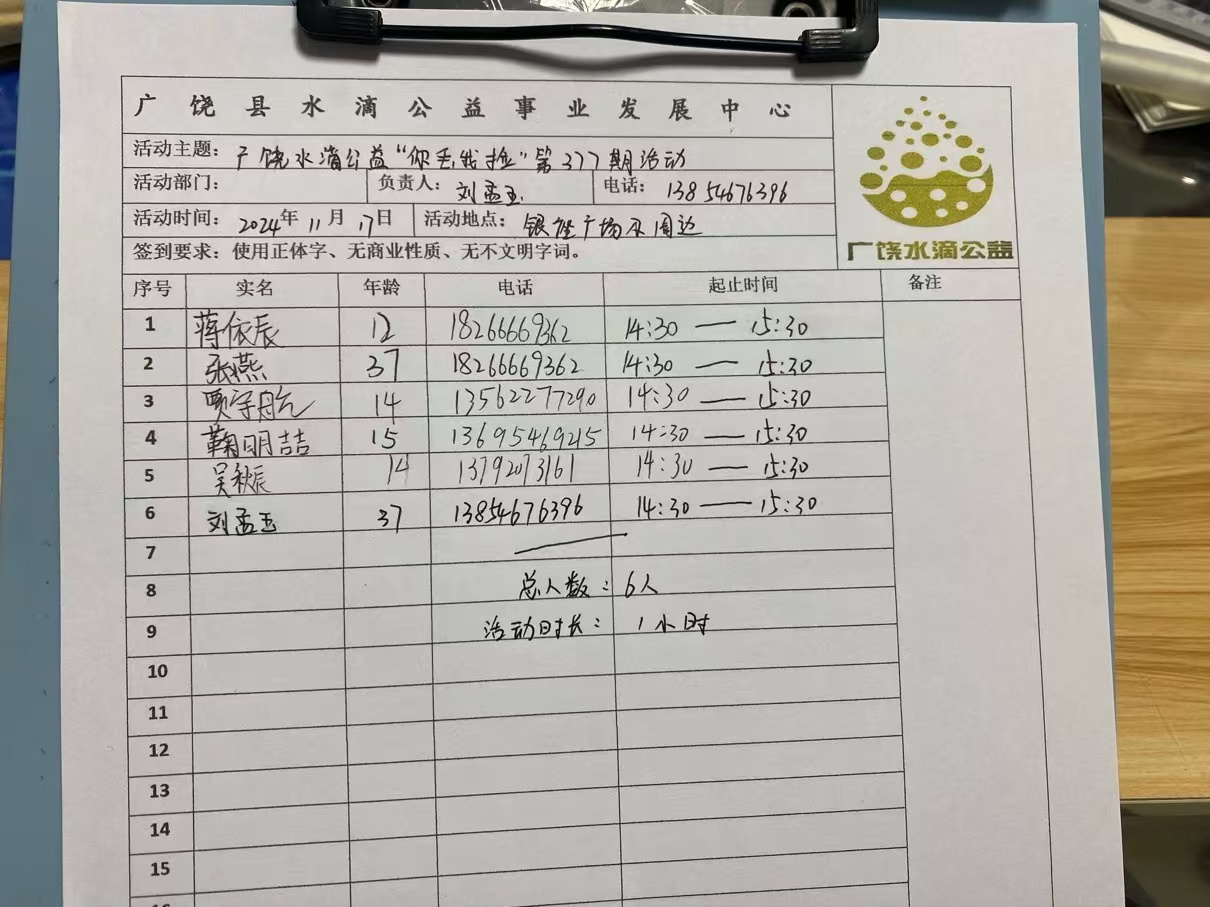 广饶县水滴公益事业发展中心
活动主题：广饶水滴公益“你丢我捡”第377期活动
活动部门： 负责人：刘孟玉 电话：13854676396
活动时间：2024年11月17日 活动地点：银座广场及周边
签到要求：使用正体字、无商业性质、无不文明字词。
广饶水滴公益
序号 实名 年龄 电话 起止时间 备注
1 蒋依辰 12 18266669362 14:30 — 15:30
2 张燕 37 18266669362 14:30 — 15:30
3 贾宇航 14 13562277290 14:30 — 15:30
4 鞠明喆 15 13695469215 14:30 — 15:30
5 吴秋辰 14 13792073161 14:30 — 15:30
6 刘孟玉 37 13854676396 14:30 — 15:30
7
8 总人数：6人
9 活动时长：1小时
10
11
12
13
14
15